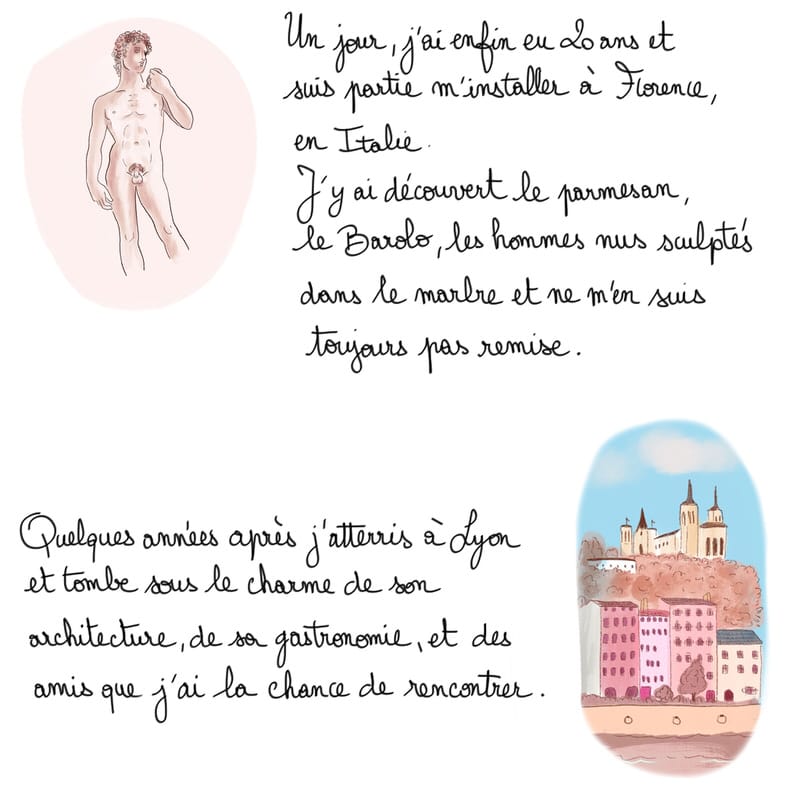 Un jour, j'ai enfin eu 20 ans et
suis partie m'installer à Florence,
en Italie.
J'y ai découvert le parmesan,
le Barolo, les hommes nus sculptés
dans le marbre et ne m'en suis
toujours pas remise.
Quelques années après j'atterris à Lyon
et tombe sous le charme de son
architecture, de sa gastronomie, et des
amis que j'ai la chance de rencontrer.